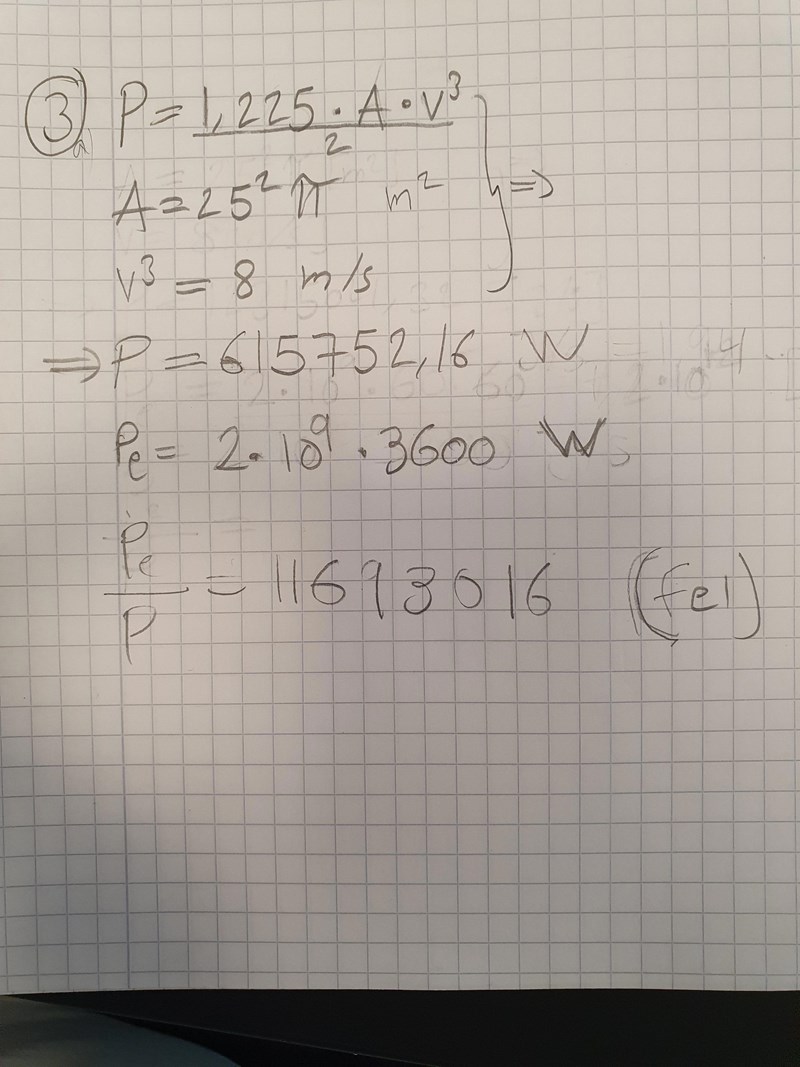 3a P = 1,225 · A · v³ / 2
A = 25² π m² } ⇒
v³ = 8 m/s
⇒ P = 615752,16 W
Pe = 2 · 10⁹ · 3600 W
Pe / P = 11693016 (fel)